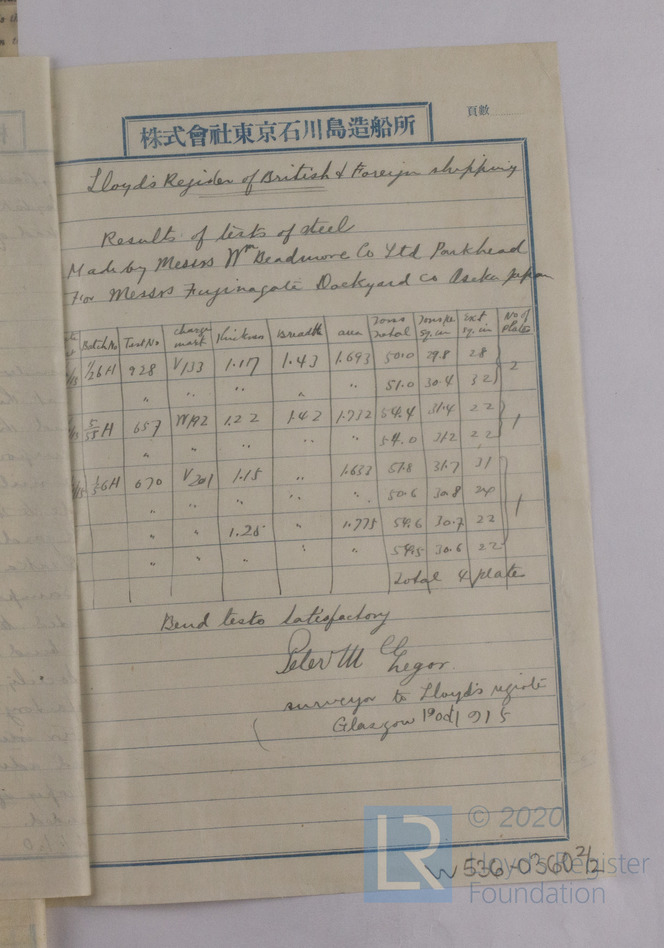 頁數
株式會社東京石川島造船所
Lloyd's Register of British & Foreign shipping
Results of tests of steel
Made by Messrs Wm Beadmore Co Ltd Parkhead
For Messrs Fujinagate Dockyard Co Asaka Japan
Batch No Test No Charge mark Thickness Breadth area Tons total Tons per sq. in Ext sq. in No of plates
1/26 H 928 V133 1.17 1.43 1.693 50.0 29.8 28 2
" " " " " 51.0 30.4 32
5/55 H 657 W192 1.22 1.42 1.732 54.4 31.4 22 1
" " " " " 54.0 31.2 22
6H 670 V201 1.15 " 1.632 51.8 31.7 31 1
" " " " " 50.6 30.8 24
" " 1.25 " 1.775 54.6 30.7 22
" " " " 54.5 30.6 22
Total 4 plates
Bend tests satisfactory
Peter McGregor.
surveyor to Lloyd's registe
Glasgow 1915
W536-0360 2/2
© 2020
LR
Lloyd's Register
Foundation